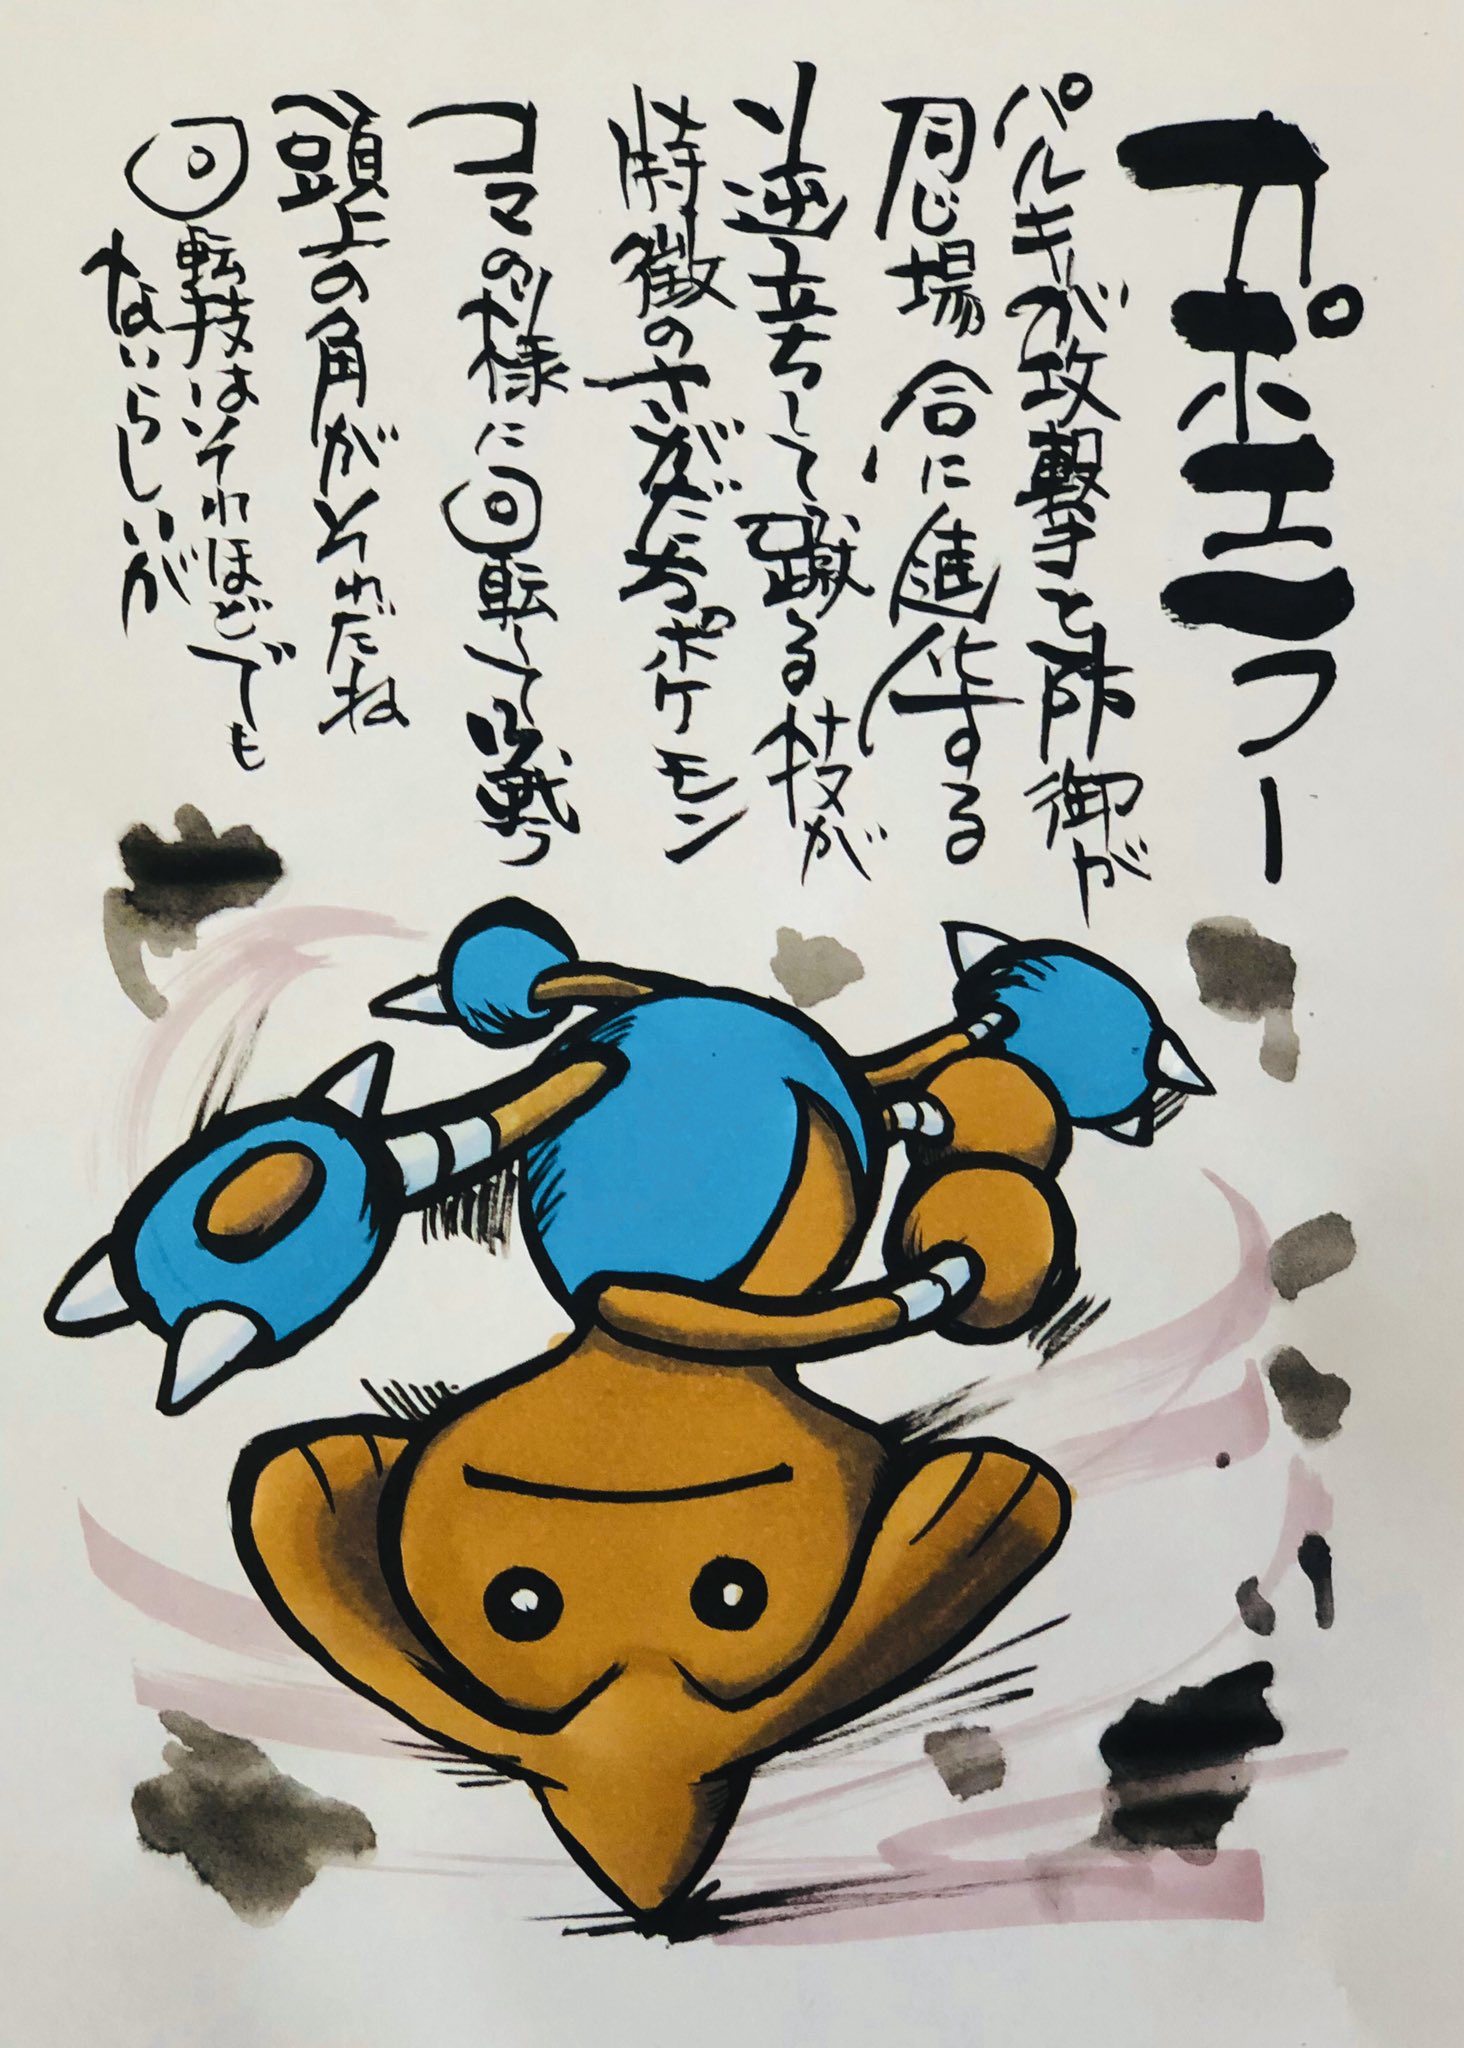 カポエラー
パルキーが攻撃と防御が
同じ場合に進化する
逆立ちして蹴る技が
特徴のさかだちポケモン
コマの様に回転して戦う
頭上の角がそれだね
回転技はそれほどでも
ないらしいが